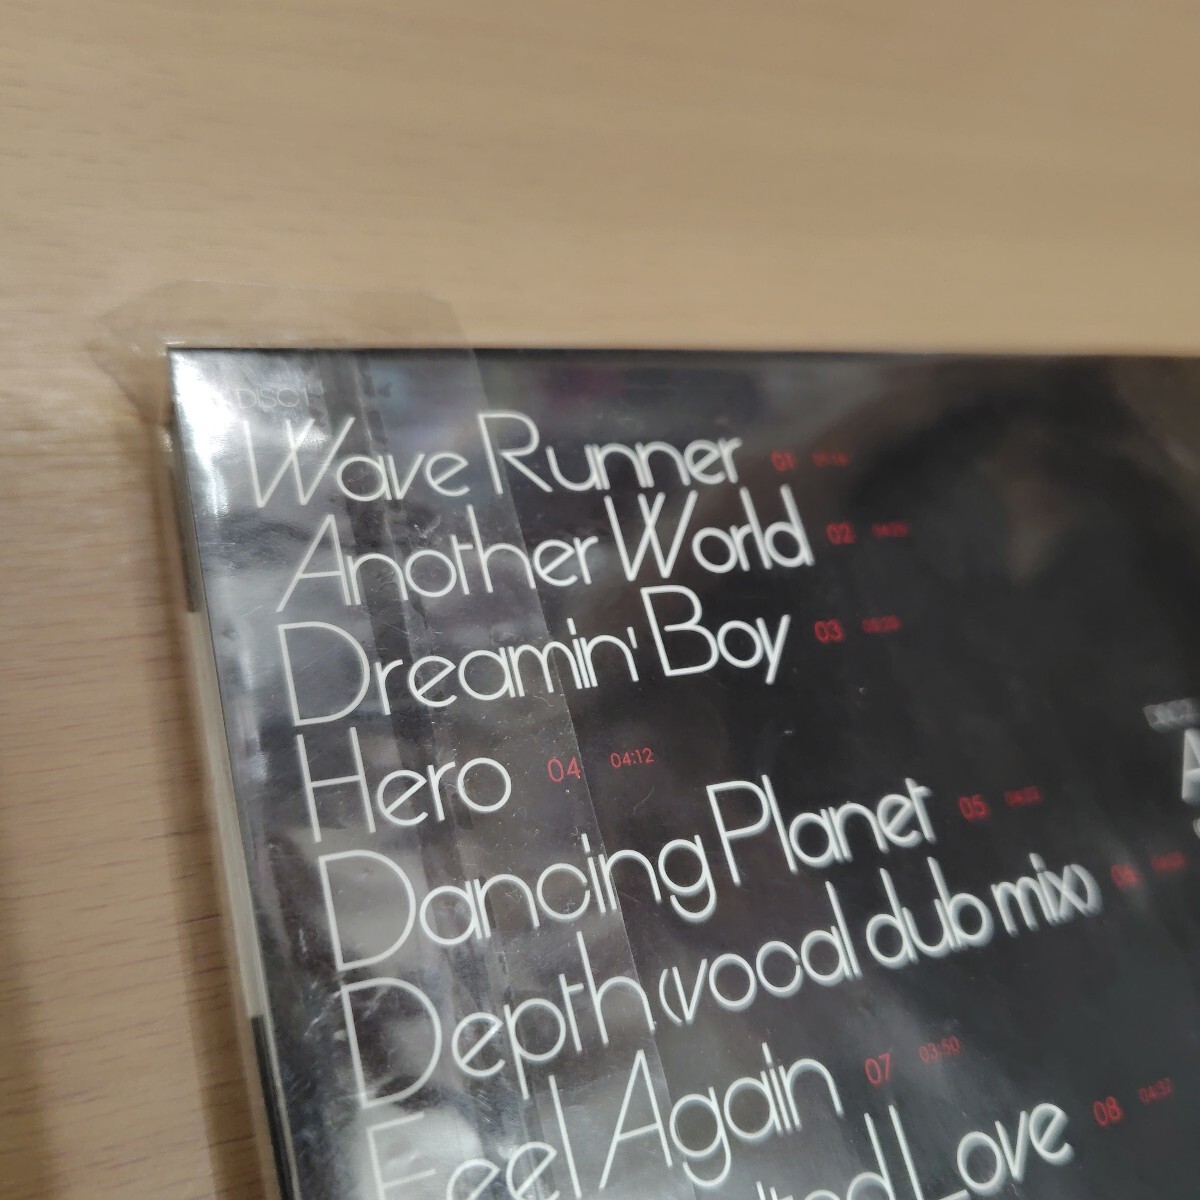 DISC 1
Wave Runner 01
Another World 02
Dreamin' Boy 03
Hero 04 04:12
Dancing Planet 05
Depth (vocal dub mix) 06
Feel Again 07 03:50
Love 08 04:37